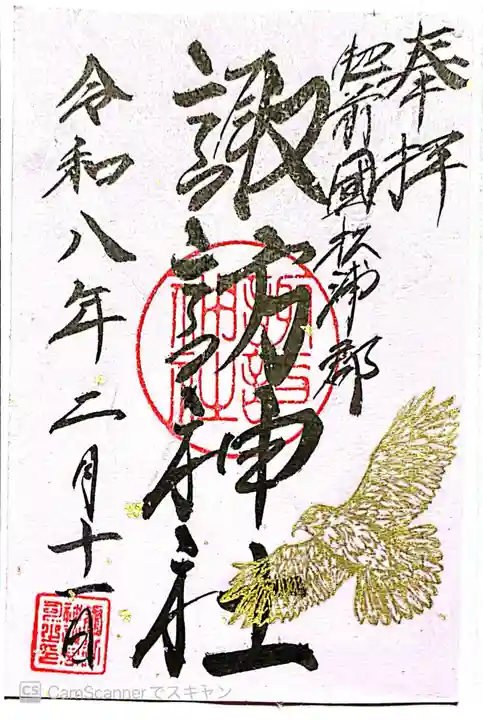 奉拝
肥前國松浦郡
諏訪神社
令和八年二月十一日
諏訪神社
CS CamScanner でスキャン